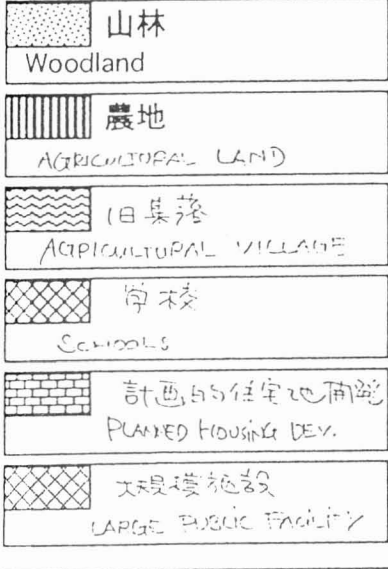 山林
Woodland
農地
AGRICULTURAL LAND
旧集落
AGRICULTURAL VILLAGE
学校
SCHOOLS
計画的住宅地開発
PLANNED HOUSING DEV.
大規模施設
LARGE PUBLIC FACILITY